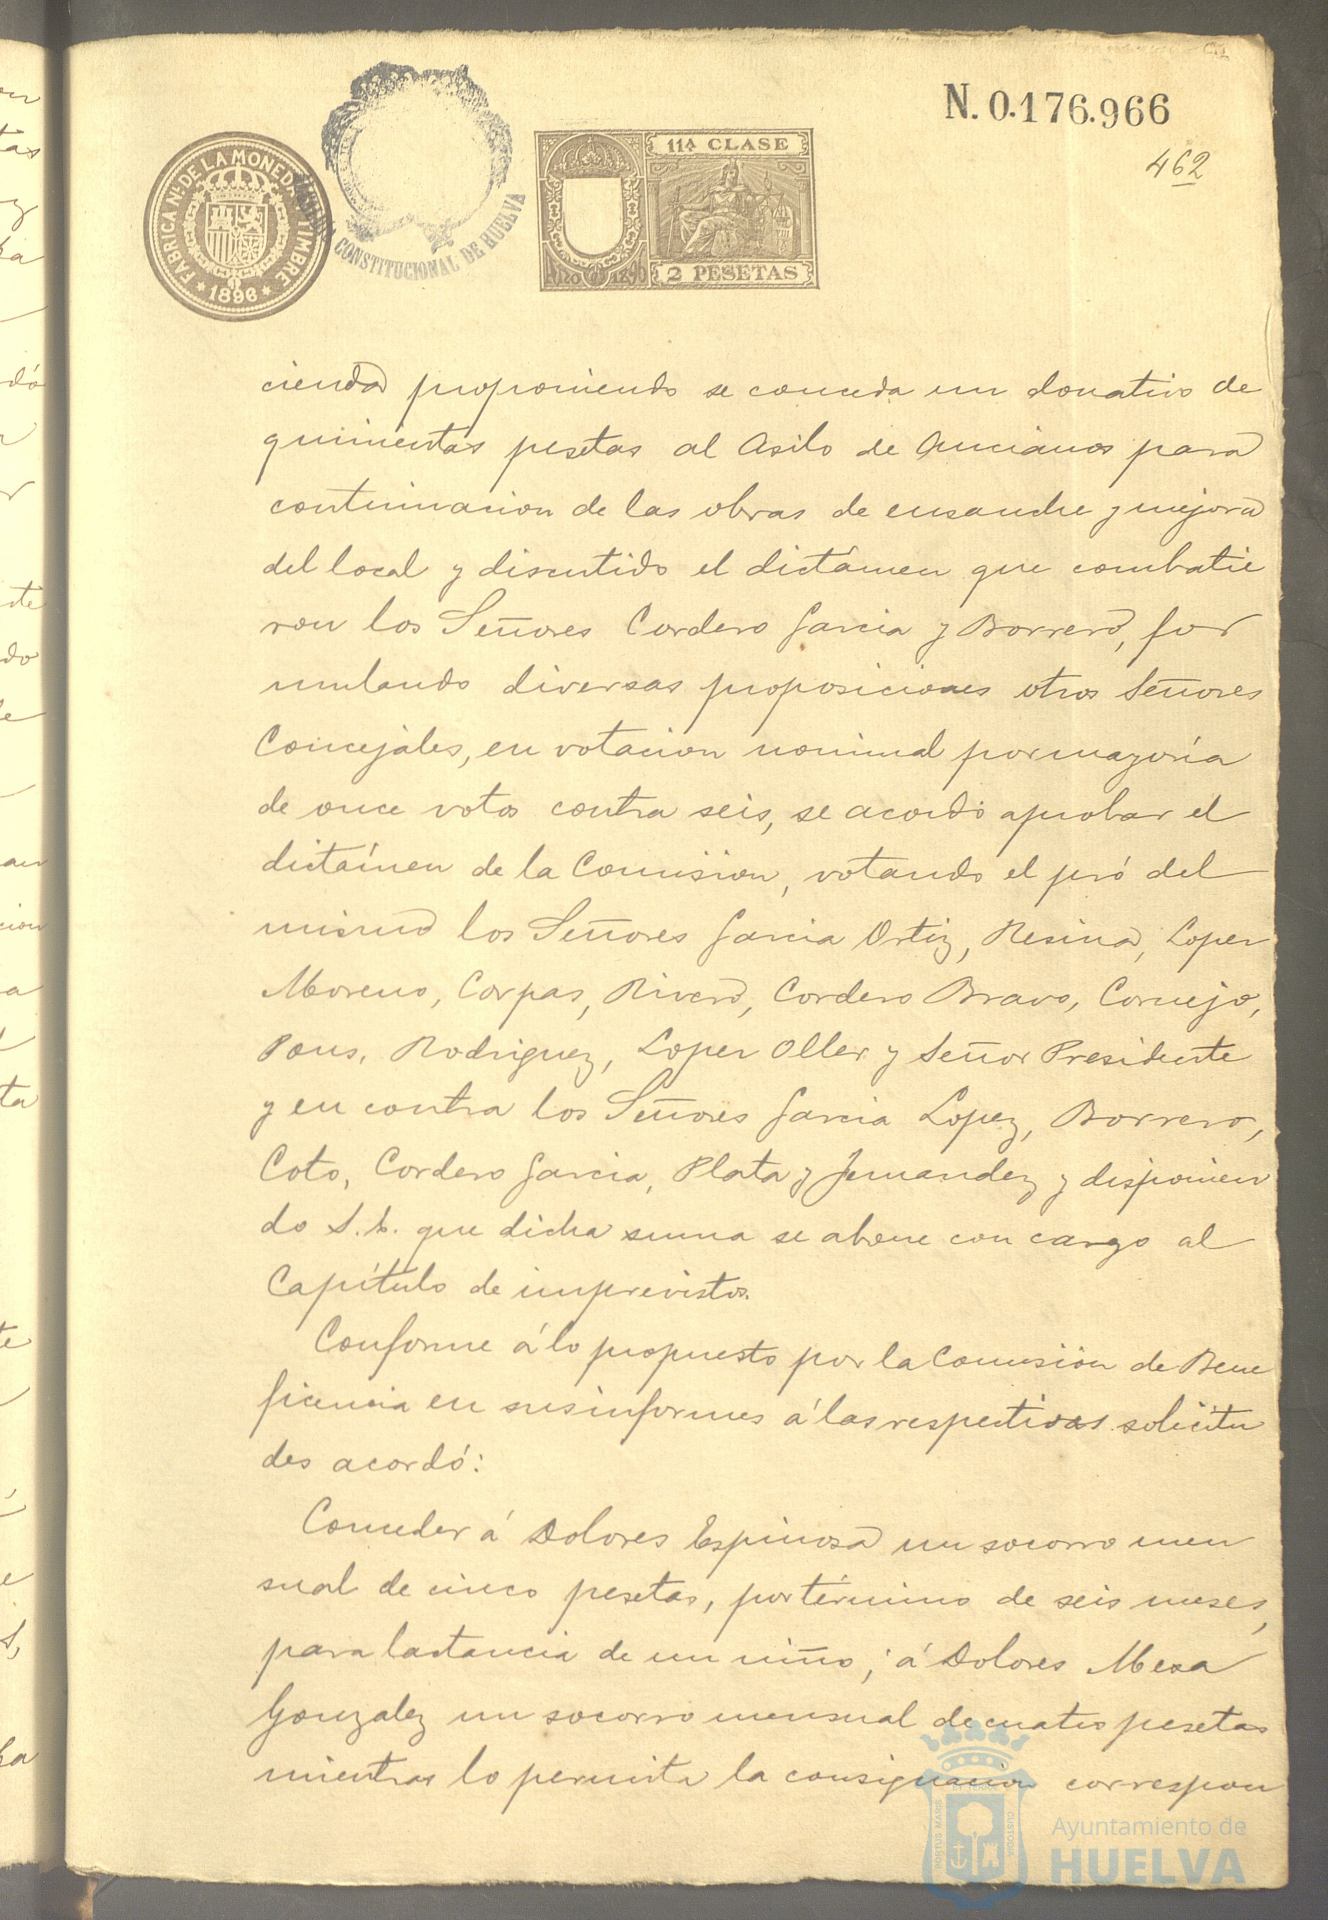 N. 0.176.966
462
FÁBRICA NL. DE LA MONEDA Y TIMBRE
* 1896 *
CONSTITUCIONAL DE HUELVA
11ª CLASE
2 PESETAS
cienda proponiendo se conceda un donativo de
quinientas pesetas al Asilo de Ancianos para
continuacion de las obras de ensanche y mejora
del local y discutido el dictámen que combatie
ron los Señores Cordero Garcia y Borrero, for
mulando diversas proposiciones otros Señores
Concejales, en votacion nominal por mayoría
de once votos contra seis, se acordó aprobar el
dictámen de la Comision, votando el pró del
mismo los Señores Garcia Ortiz, Resina, Lopez
Moreno, Corpas, Rivero, Cordero Bravo, Cornejo,
Pons, Rodriguez, Lopez Oller y Señor Presidente
y en contra los Señores Garcia Lopez, Borrero,
Coto, Cordero Garcia, Plata y Fernandez y disponien
do S. E. que dicha suma se abone con cargo al
Capítulo de imprevistos.
Conforme á lo propuesto por la Comision de Bene
ficencia en sus informes á las respectivas solicitu
des acordó:
Conceder á Dolores Espinosa un socorro men
sual de cinco pesetas, por término de seis meses,
para lactancia de un niño; á Dolores Meza
Gonzalez un socorro mensual de cuatro pesetas
mientras lo permita la consignacion correspon
PORTUS MARIS
CUSTODIA
Ayuntamiento de
HUELVA